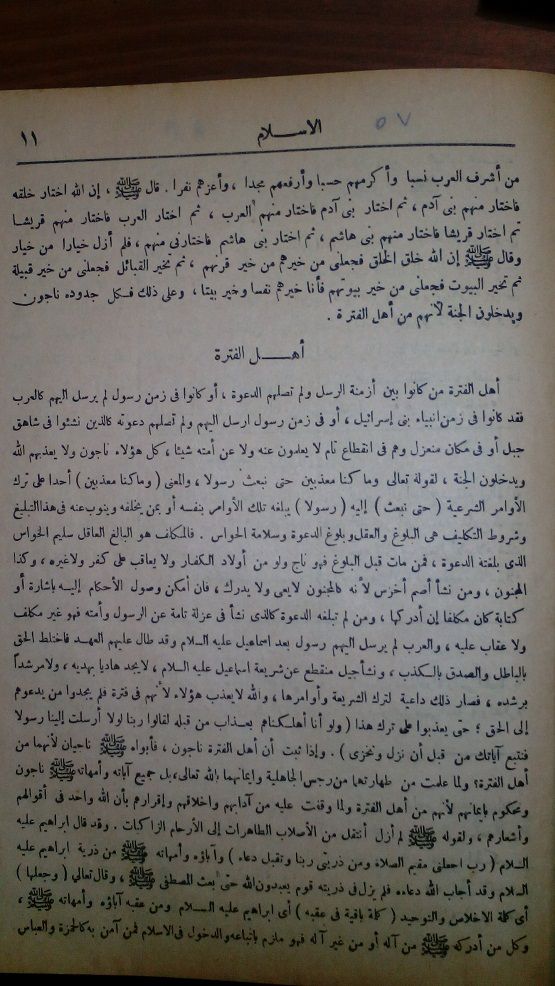 ٥٧
الاسلام
١١
من أشرف العرب نسبا وأكرمهم حسبا وأرفعهم مجدا ، وأعزهم نفرا . قال ﷺ ، إن الله اختار خلقه
فاختار منهم بنى آدم ، ثم اختار بنى آدم فاختار منهم العرب ، ثم اختار العرب فاختار منهم قريشا
ثم اختار قريشا فاختار منهم بنى هاشم ، ثم اختار بنى هاشم فاختارنى منهم ، فلم أزل خيارا من خيار
وقال ﷺ إن الله خلق الخلق فجعلنى من خيرهم من خير قرنهم ، ثم تخير القبائل فجعلنى من خير قبيلة
ثم تخير البيوت فجعلنى من خير بيوتهم فأنا خيرهم نفسا وخير بيتا ، وعلى ذلك فكل جدوده ناجون
ويدخلون الجنة لأنهم من أهل الفترة .
أهل الفترة
أهل الفترة من كانوا بين أزمنة الرسل ولم تصلهم الدعوة ، أو كانوا فى زمن رسول لم يرسل اليهم كالعرب
فقد كانوا فى زمن انبياء بنى إسرائيل ، أو فى زمن رسول ارسل اليهم ولم تصلهم دعوته كالذين نشئوا فى شاهق
جبل أو فى مكان منعزل وهم فى انقطاع تام لا يعلمون عنه ولا عن أمته شيئا ، كل هؤلاء ناجون ولا يعذبهم الله
ويدخلون الجنة ، لقولة تعالى وما كنا معذبين حتى نبعث رسولا ، والمعنى ( وما كنا معذبين ) أحدا على ترك
الأوامر الشرعية ( حتى نبعث ) إليه ( رسولا ) يبلغه تلك الأوامر بنفسه أو بمن يخلفه وينوب عنه فى هذا التبليغ
وشروط التكليف هى البلوغ والعقل وبلوغ الدعوة وسلامة الحواس . فالمكلف هو البالغ العاقل سليم الحواس
الذى بلغته الدعوة ، فمن مات قبل البلوغ فهو ناج ولو من أولاد الكفار ولا يعاقب على كفر ولا غيره ، وكذا
المجنون ، ومن نشأ أصم أخرس لأنه كالمجنون لا يعى ولا يدرك ، فان أمكن وصول الأحكام إليه باشارة أو
كتابة كان مكلفا إن أدركها ، ومن لم تبلغه الدعوة كالذى نشأ فى عزلة تامة عن الرسول وأمته فهو غير مكلف
ولا عقاب عليه ، والعرب لم يرسل اليهم رسول بعد اسماعيل عليه السلام وقد طال عليهم العهد فاختلط الحق
بالباطل والصدق بالكذب ، ونشأ جيل منقطع عن شريعة اسماعيل عليه السلام ، لايجد هاديا يهديه ، ولا مرشداً
يرشده ، فصار ذلك داعية لترك الشريعة وأوامرها ، والله لا يعذب هؤلاء لأنهم فى فترة فلم يجدوا من يدعوهم
إلى الحق ؛ حتى يعذبوا على ترك هذا ( ولو أنا أهلكناهم بعذاب من قبله لقالوا ربنا لولا أرسلت إلينا رسولا
فنتبع آياتك من قبل أن نزل ونخزى ) . وإذا ثبت أن أهل الفترة ناجون ، فأبواه ﷺ ناجيان لأنهما من
أهل الفترة؟ ولما علمت من طهارتهما من رجس الجاهلية وايمانهما بالله تعالى، بل جميع آبائه وأمهاته ﷺ ناجون
ومحكوم بايمانهم لأنهم من أهل الفترة ولما وقفت عليه من آدابهم واخلاقهم وإقرارهم بأن الله واحد فى أقوالهم
وأشعارهم ، ولقوله ﷺ لم أزل أنتقل من الأصلاب الطاهرات إلى الأرحام الزاكيات . وقد قال ابراهيم عليه
السلام ( رب اجعلنى مقيم الصلاة ومن ذريتى ربنا وتقبل دعاء ) وآباؤه وأمهاته ﷺ من ذرية ابراهيم عليه
السلام وقد أجاب الله دعاءه فلم يزل فى ذريته قوم يعبدون الله حتى بعث المصطفى ﷺ ، وقال تعالي ( وجعلها )
أى كلمة الاخلاص والتوحيد ( كلمة باقية فى عقبه ) أى ابراهيم عليه السلام ومن عقبه آباؤه وأمهاته ﷺ ،
وكل من أدركه ﷺ من آله أو من غير آله فهو ملزم باتباعه والدخول فى الاسلام فمن آمن به كالحمزة والعباس